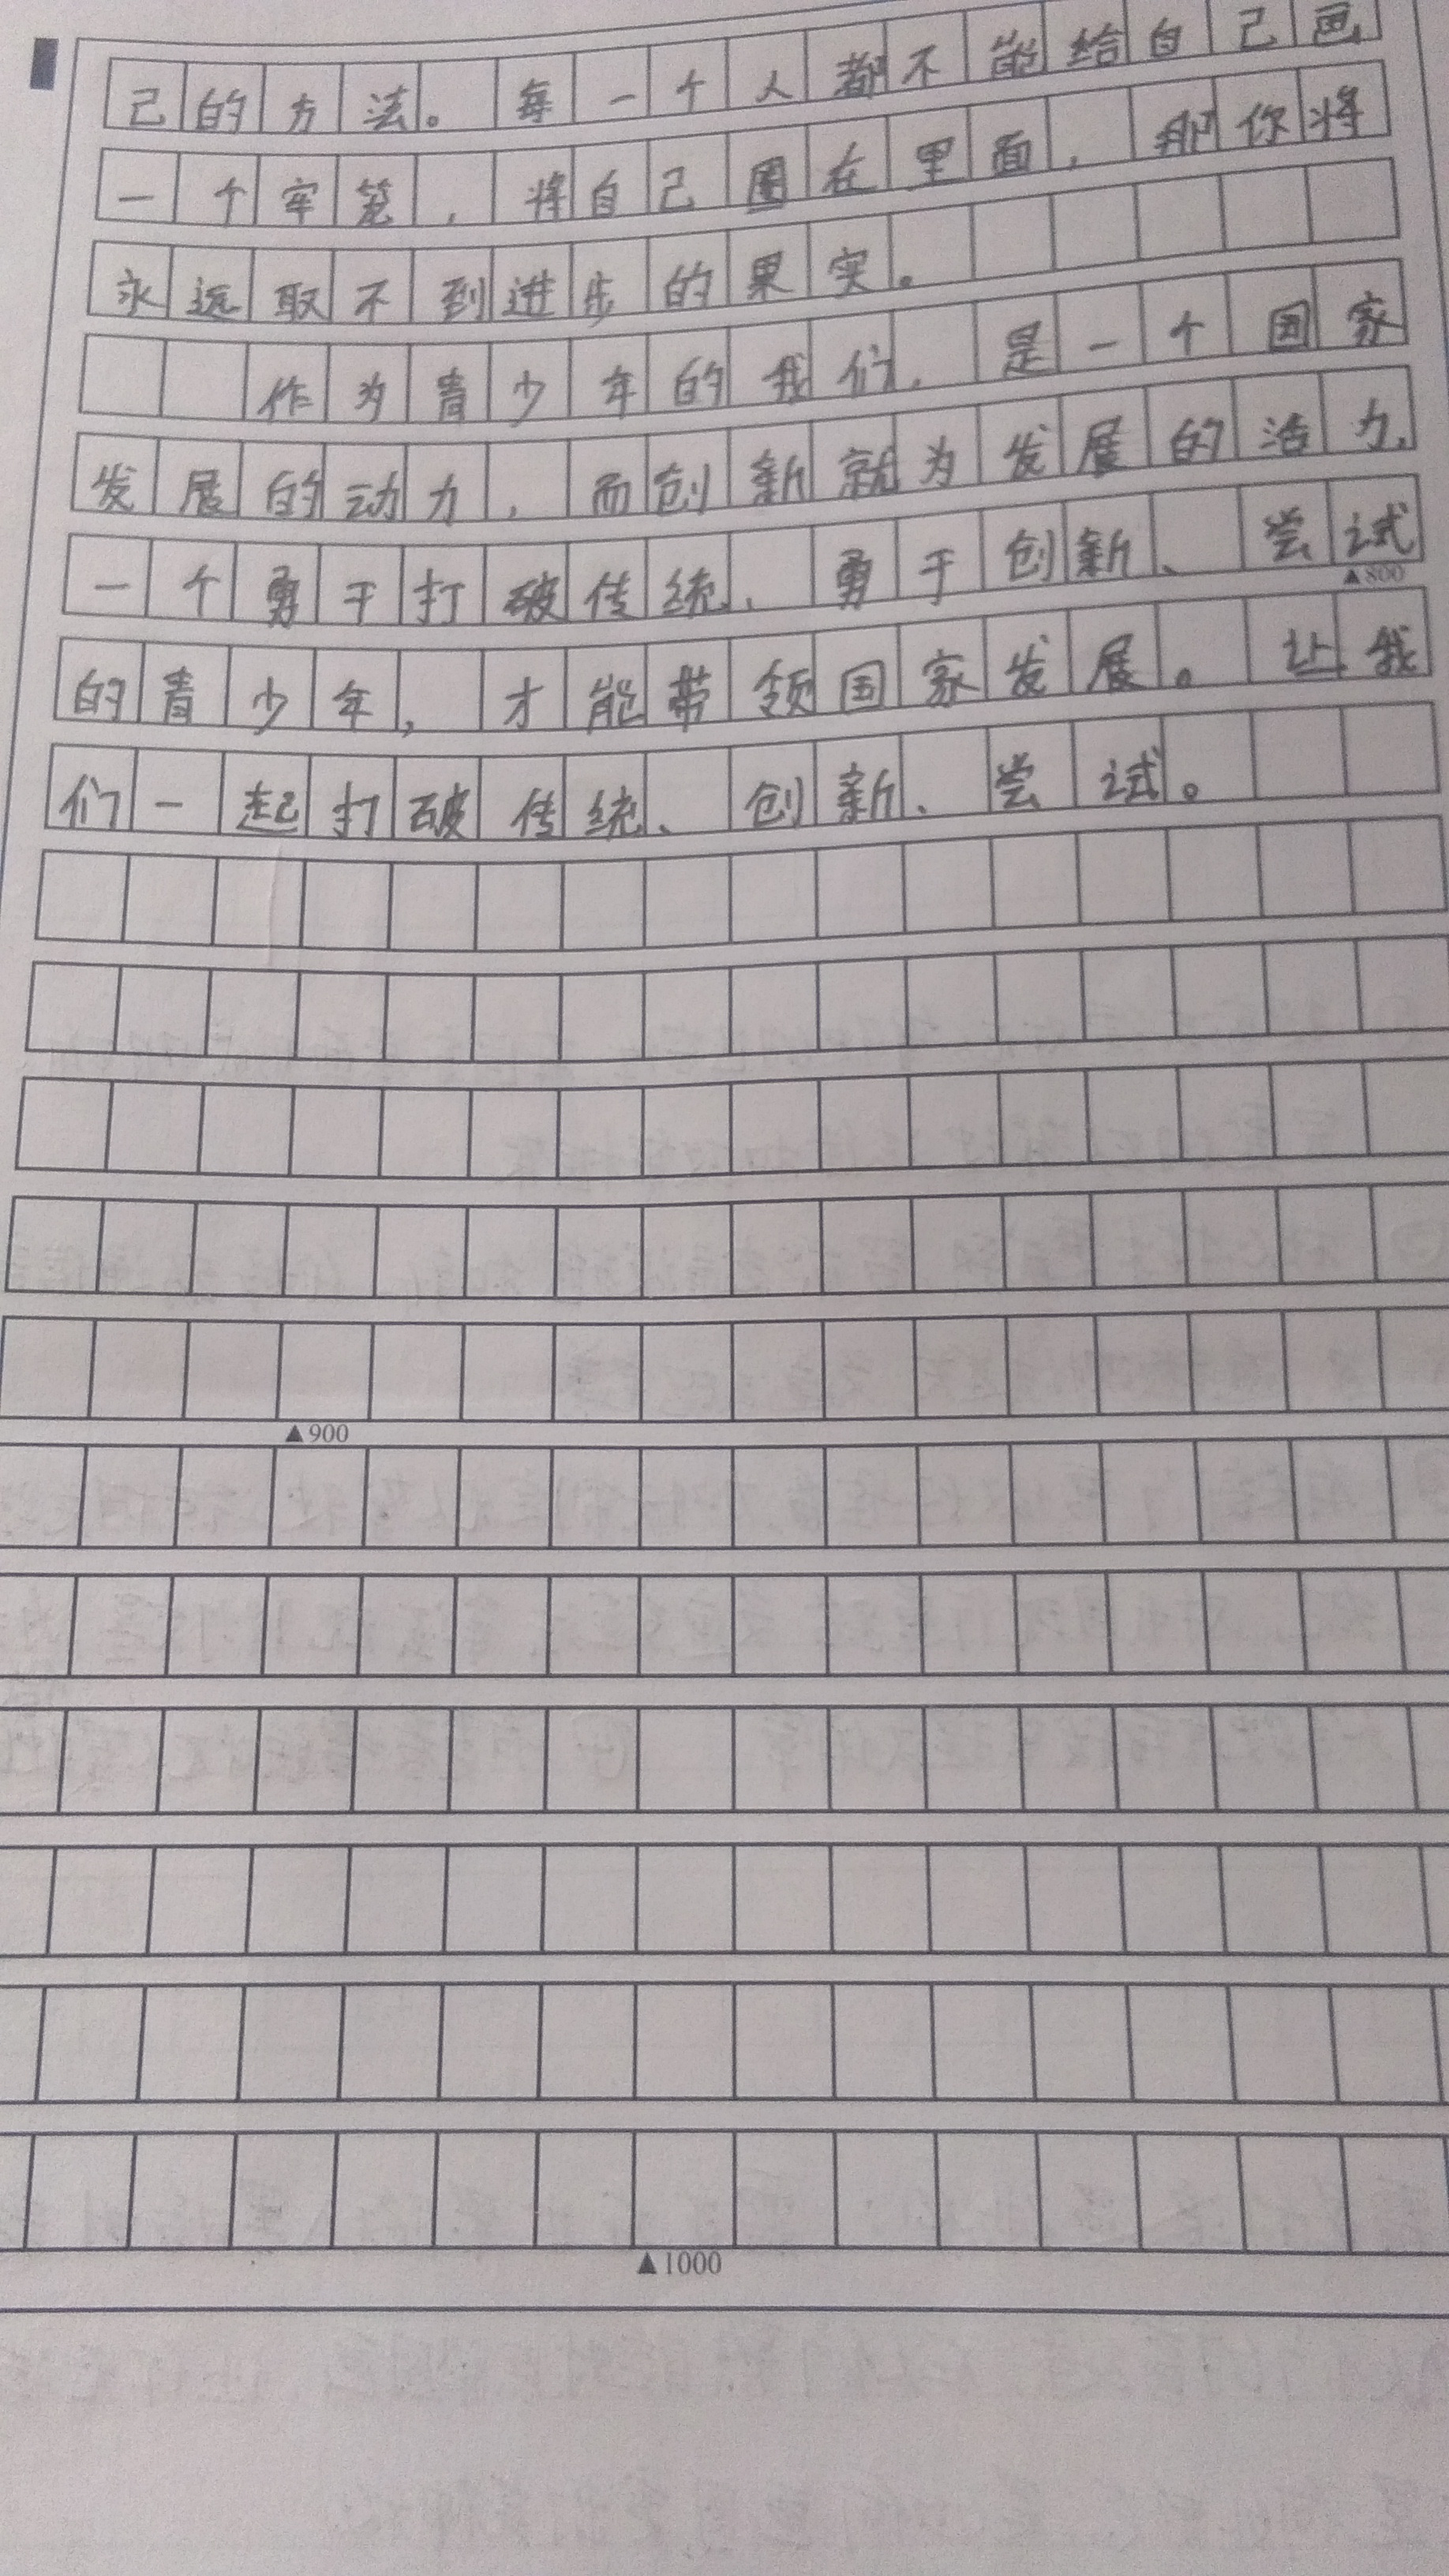 己的方法。每一个人都不能给自己画
一个牢笼，将自己圈在里面，那你将
永远取不到进步的果实。
作为青少年的我们，是一个国家
发展的动力，而创新就为发展的活力，
一个勇于打破传统、勇于创新、尝试
▲800
的青少年，才能带领国家发展。让我
们一起打破传统、创新、尝试。
▲900
▲1000